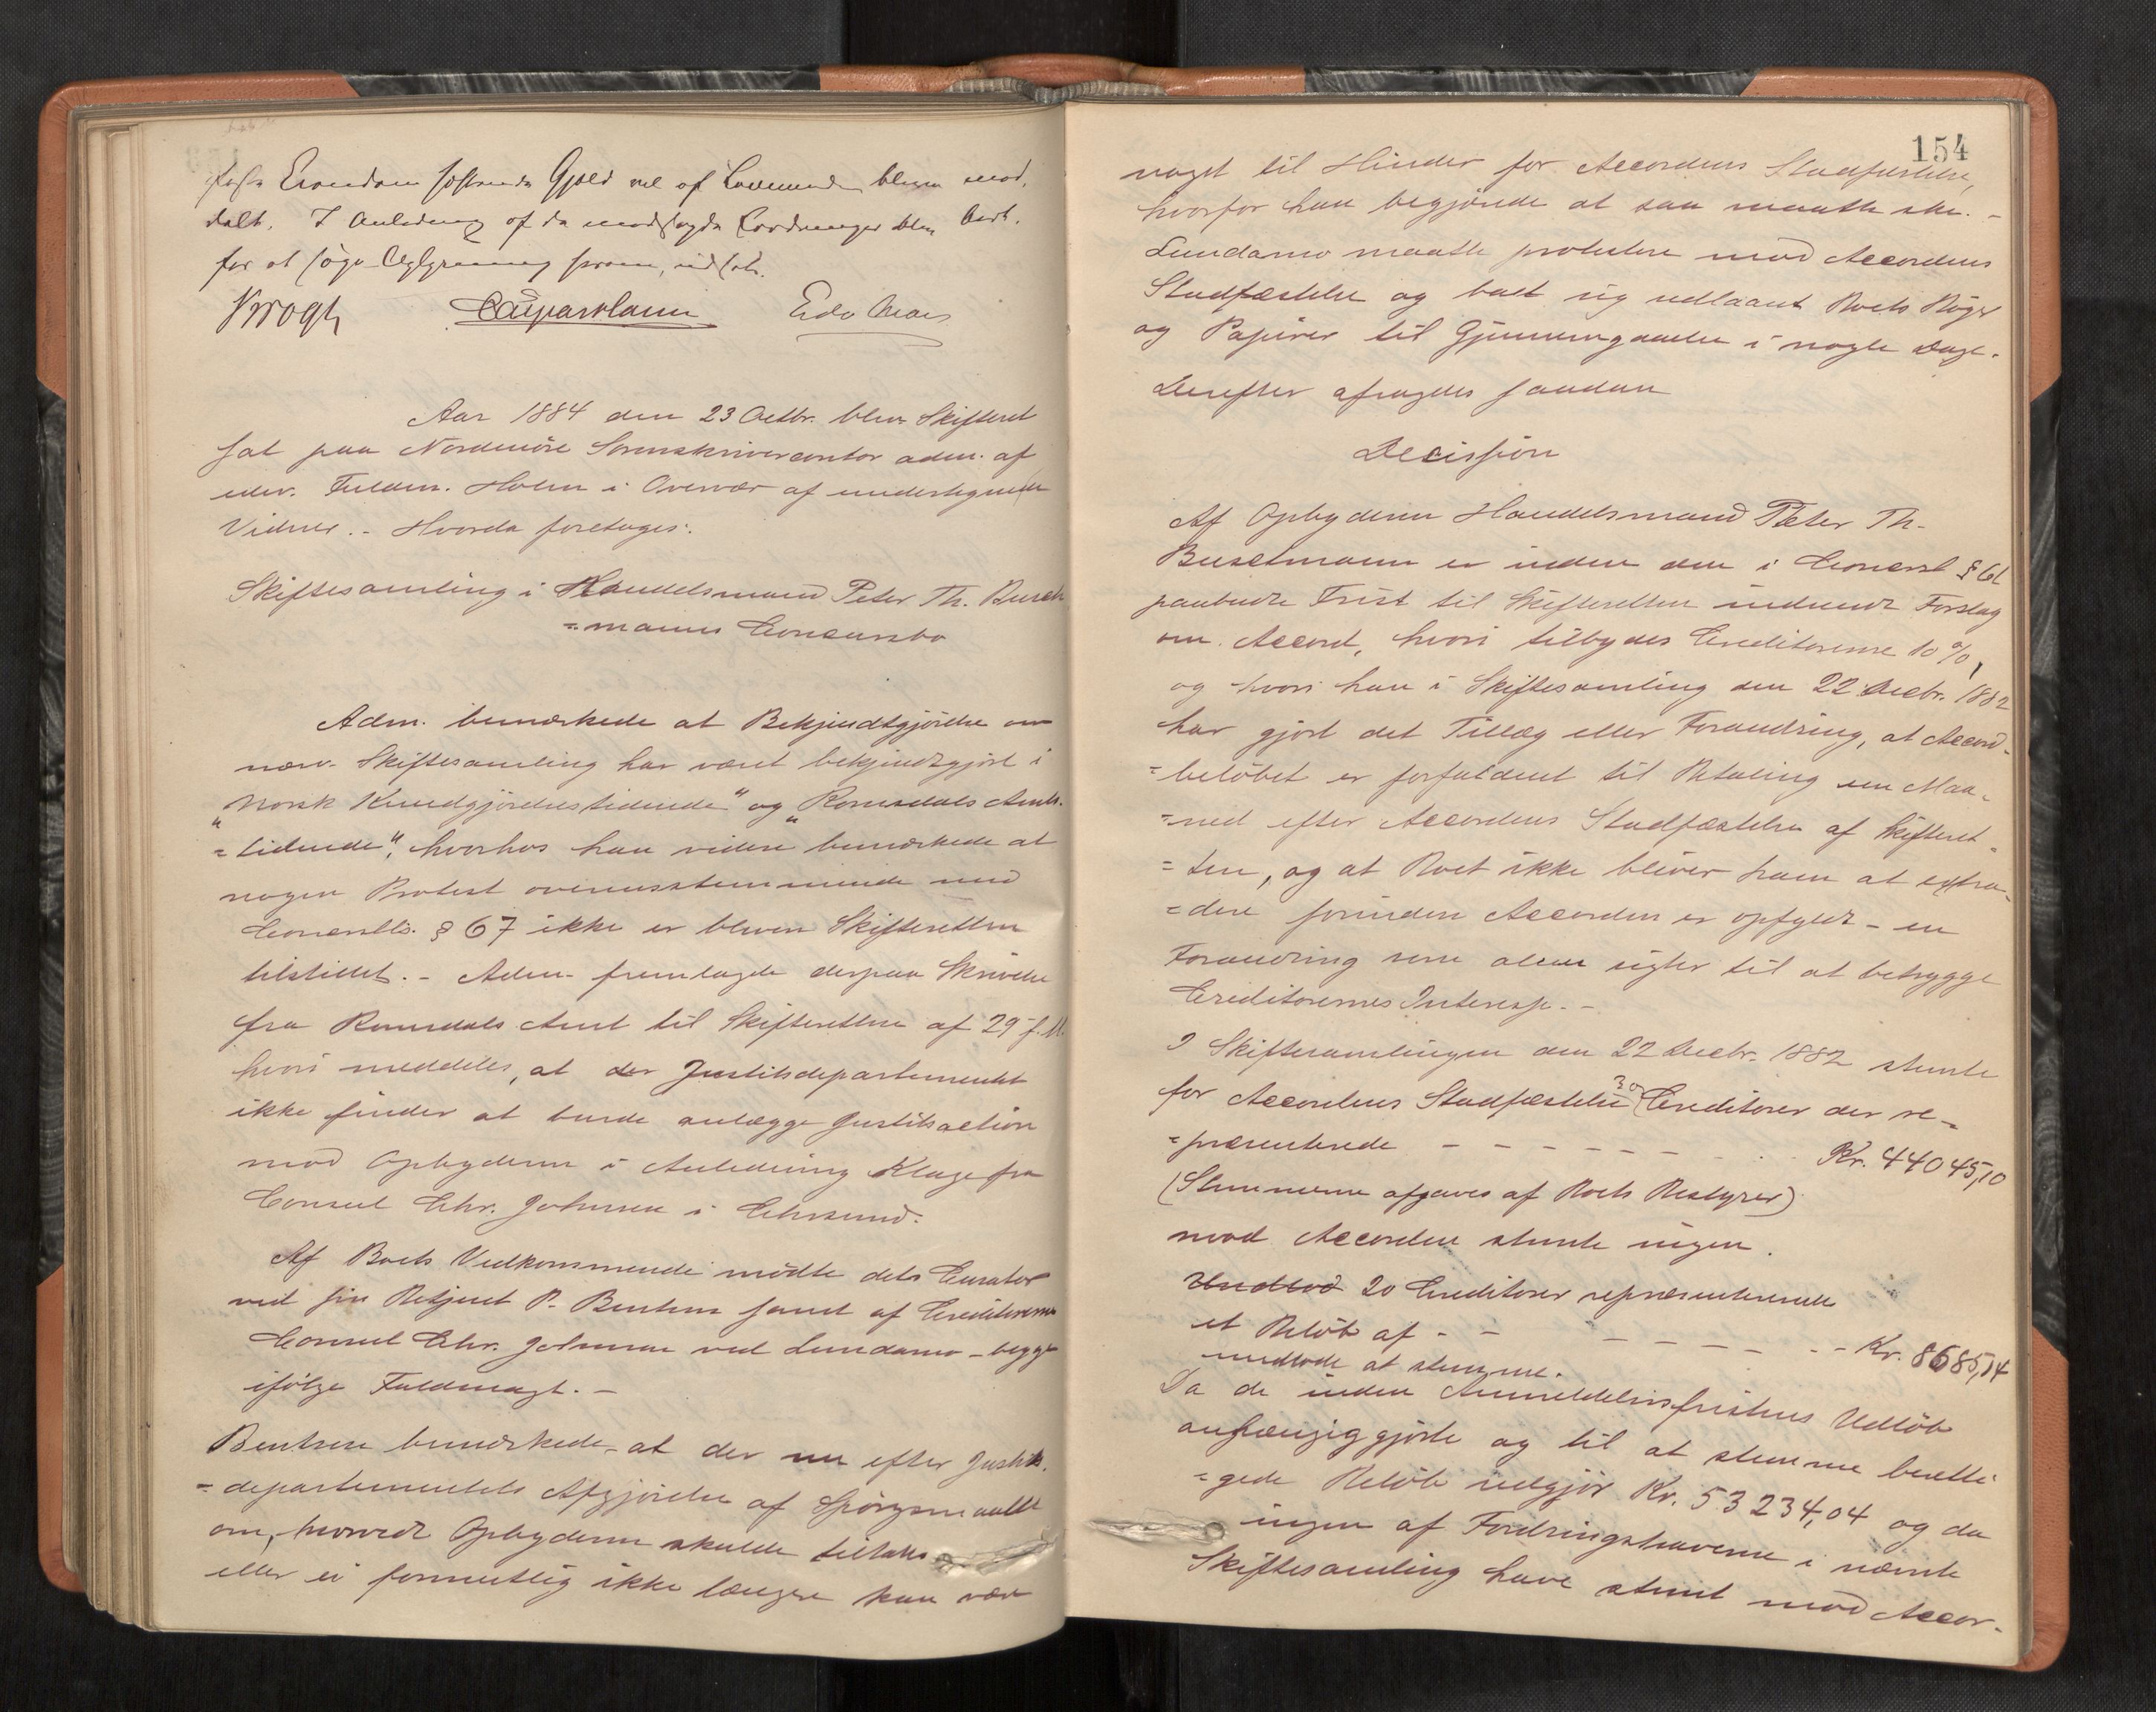 faste Eiendom Gjæld vel af blegen mod.
dalt. I Anledning af de modsagde Fordringer blev Boet.
for at søge Oplysning frem, udsat.
Krogh Edv
Aar 1884 den 23 Octbr. blev Skifteret
sat paa Nordmöre Sorenskrivercontor adm. af
edsv. Fuldm. Holm i Overvær af undertegnede
Vidner. - Hvorda foretoges:
Skiftesamling i Handelsmand Peter Th. Busch
=manns Concursbo
Adm. bemærkede at Bekjendtgjörelse om
nærv. Skiftesamling har været bekjendtgjort i
"Norsk Kundgjörelsestidende" og "Romsdals Amts-
=tidende", hvorhos han videre bemærkede at
nogen Protest overensstemmende med
Concurslls. § 67 ikke er bleven Skifteretten
tilstillet. - Adm. fremlagde derpaa Skrivelse
fra Romsdals Amt til Skifteretten af 29 f. M.
hvori meddeles, at der Justitsdepartementet
ikke finder at burde anlægge Justitsaction
mod Opbyderen i Anledning Klage fra
Consul Chr. Johnsen i Chrsund.
Af Boets Vedkommende mödte dets Curator
ved sin Betjent P. Bentsen samt af Creditorerne
Consul Chr. Johnsen ved Lundamo - begge
ifölge Fuldmagt. -
Bentsen bemærkede, at der nu efter Justits-
=departementets Afgjörelse af Spörgsmaalet
om, hvorvidt Opbyderen skulde tiltales
eller ei formentlig ikke længere kan være
154
noget til Hinder for Accordens Stadfæstelse,
hvorfor han begjærede at saa maatte ske. -
Lundamo maatte protestere mod Accordens
Stadfæstelse og bad sig udlaant Boets Böger
og Papirer til Gjennemgaaelse i nogle Dage.
Derefter afsagdes saadan
Decission
Af Opbyderen Handelsmand Peter Th.
Buschmann er inden den i Concursl § 61
paabudte Frist til Skifteretten indsendt Forslag
om Accord, hvori tilbydes Creditorerne 10 %,
og hvori han i Skiftesamling den 22 Decbr. 1882
har gjort det Tillæg eller Forandring, at Accord-
=belöbet er forfaldent til Betaling een Maa-
=ned efter Accordens Stadfæstelse af Skifteret-
=ten, og at Boet ikke bliver ham at extra-
=dere forinden Accorden er opfyldt - en
Forandring som alene sigter til at betrygge
Creditorernes Interesse. -
I Skiftesamlingen den 22 Decbr. 1882 stemte
for Accordens Stadfæstelse 30 Creditorer der re-
=præsenterede - - - - - - - Kr. 44045,10
(Stemmerne afgaves af Boets Bestyrer)
mod Accorden stemte ingen.
Undlod 20 Creditorer repræsenterende
et Belöb af - - - - - - - - Kr. 8685,14
undlode at stemme.
Da de inden Anmeldelsesfristens Udlöb
anhængiggjorte og til at stemme beretti-
=gede Belöb udgjör Kr. 53234,04 og da
ingen af Fordringshaverne i nævnte
Skiftesamling have stemt mod Accor-